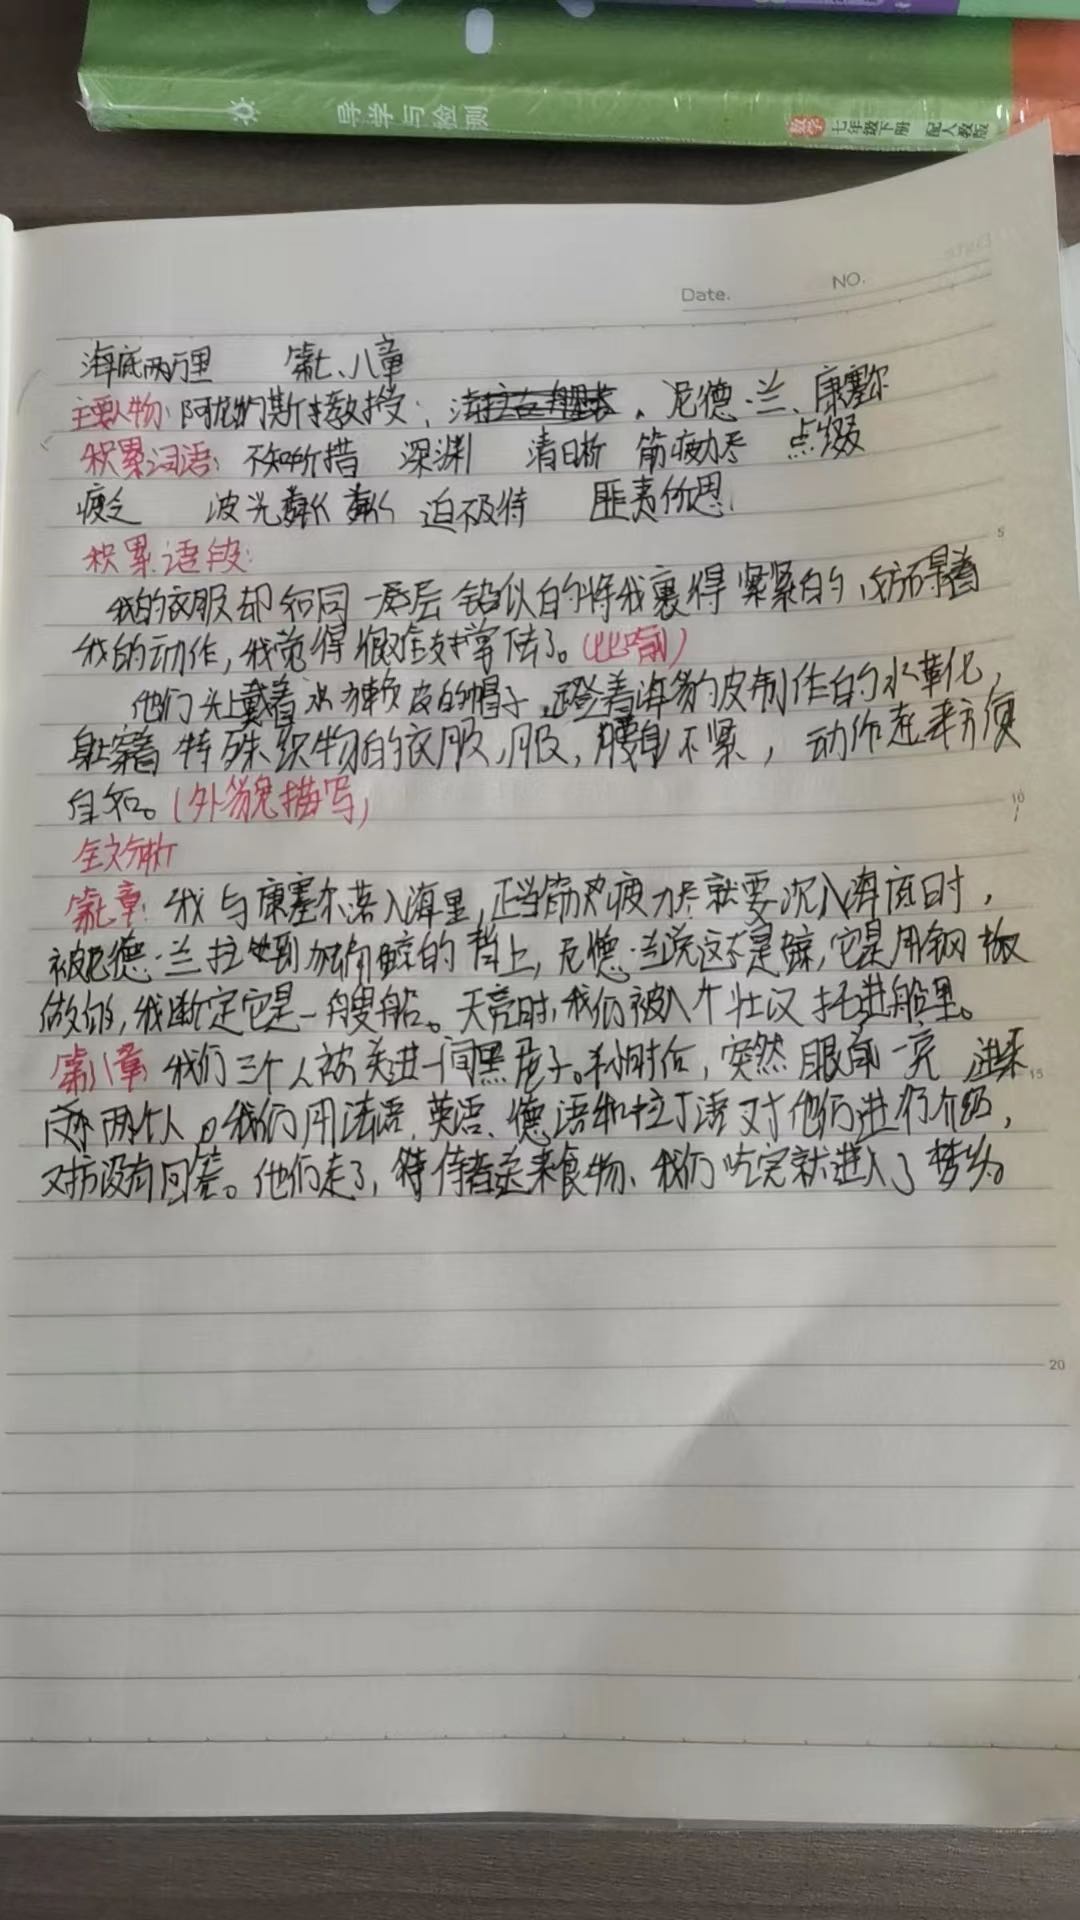 导学与检测
数学 七年级下册 配人教版
Date.
NO.
海底两万里 第七、八章
主要人物：阿龙纳斯教授、尼德·兰、康塞尔
积累词语：不知所措 深渊 清晰 筋疲力尽 点缀
疲乏 波光粼粼 迫不及待 匪夷所思
积累语段：
我的衣服却如同一层层铅似的将我裹得紧紧的，妨碍着
我的动作，我觉得很难支撑住了。（比喻）
他们头上戴着水獭皮的帽子，蹬着海豹皮制作的水靴，
身上穿着特殊织物的衣服，服，腰身不紧，动作起来方便
自如。（外貌描写）
全文分析
第七章：我与康塞尔落入海里，正当筋疲力尽就要沉入海底时，
被尼德·兰拉坐到独角鲸的背上，尼德·兰说这不是鲸，它是用钢板
做的，我断定它是一艘船。天亮时，我们被八个壮汉托进船里。
第八章 我们三个人被关进一间黑屋子。半小时后，突然眼前一亮，进来
两个人。我们用法语、英语、德语和拉丁语对他们进行介绍，
对方没有回答。他们走了，侍者送来食物、我们吃完就进入了梦乡。
5
10
15
20